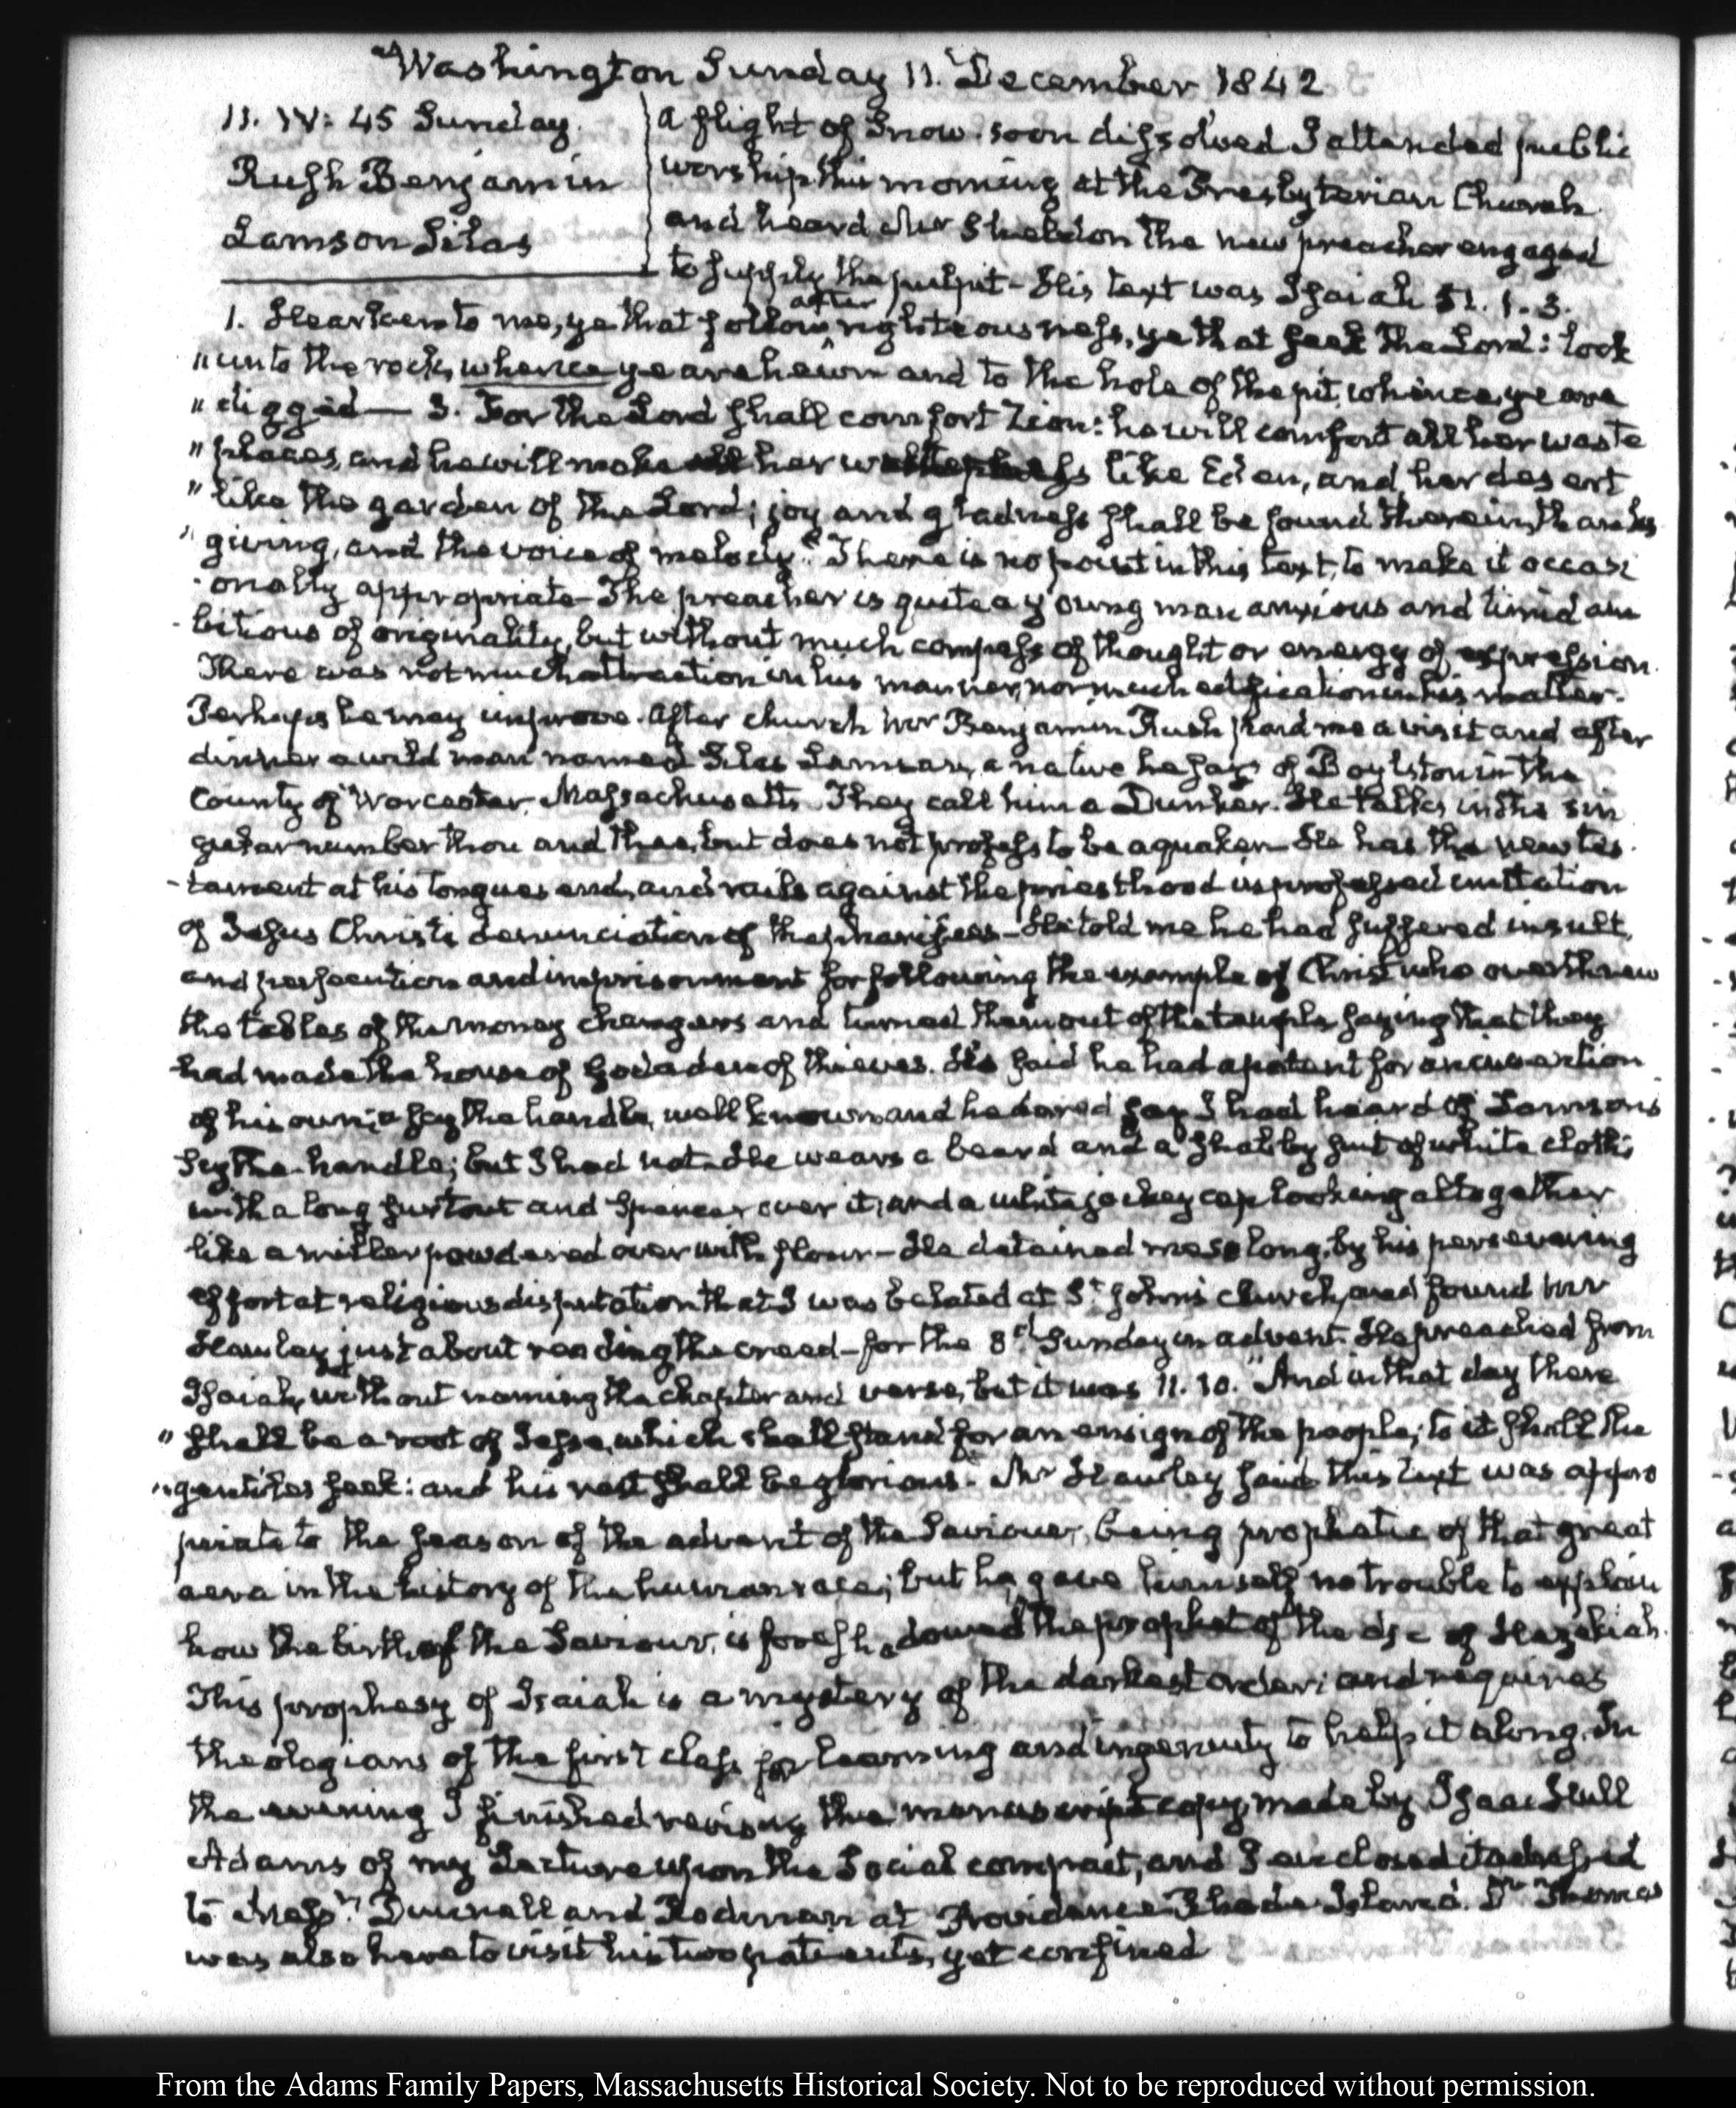 Washington Sunday 11. December 1842
11. IV: 45 Sunday.
Rush Benjamin
Lamson Silas
A flight of Snow soon dissolved I attended public
worship this morning at the Presbyterian Church
and heard Mr Sheldon the new preacher engaged
to supply the pulpit - His text was Isaiah 51. 1. 3.
1. Hearken to me, ye that follow after righteousness, ye that seek the Lord: look
"unto the rock, whence ye are hewn and to the hole of the pit, whence ye are
"digged — 3. For the Lord shall comfort Zion: he will comfort all her waste
"places, and he will make her like Eden, and her desert
"like the garden of the Lord; joy and gladness shall be found therein, thanks
"giving, and the voice of melody." There is no point in this text, to make it occasi
-onally appropriate - The preacher is quite a young man anxious and timid am
-bitious of originality, but without much compass of thought or energy of expression.
There was not much attraction in his manner, nor much edification in his matter.
Perhaps he may improve. After church Mr Benjamin Rush paid me a visit and after
dinner a wild man named Silas Lamson, a native he says of Boylston in the
County of Worcester, Massachusetts. They call him a Dunker. He talks in the sin
gular number thou and thee, but does not profess to be a quaker - He has the new tes
-tament at his tongues end, and rails against the priesthood in professed imitation
of Jesus Christs denunciation of the pharisees - He told me he had suffered insult,
and persecution and imprisonment for following the example of Christ who overthrew
the tables of the money changers and turned them out of the temple saying that they
had made the house of God a den of thieves. He said he had a patent for an invention
of his own, a scythe handle, well known and he dared say I had heard of Lamsons
scythe-handle; but I had not. He wears a beard and a shabby suit of white cloth;
with a long surtout and Spencer over it, and a white jockey cap looking altogether
like a miller powdered over with flour - He detained me so long, by his persevering
effort at religious disputation that I was belated at St. John's church, and found Mr
Hawley just about reading the creed - for the 3d. Sunday in advent. He preached from
Isaiah, without naming the chapter and verse, but it was 11. 10. "And in that day there
"shall be a root of Jesse, which shall stand for an ensign of the people; to it shall the
"gentiles seek: and his rest shall be glorious. Mr Hawley said this text was appro
priate to the season of the advent of the Saviour, being prophetic of that great
aera in the history of the human race; but he gave himself no trouble to explain
how the birth of the Saviour, is foreshadowed the prophet of the age of Hezekiah.
This prophesy of Isaiah is a mystery of the darkest order; and requires
theologians of the first class for learning and ingenuity to help it along. In
the evening I finished revising the manuscript copy, made by Isaac Hull
Adams of my Lecture upon the Social compact, and I enclosed it addressed
to Messrs. Burnall and Rodman at Providence Rhode Island. Dr Thomas
was also here to visit his two patients, yet confined
From the Adams Family Papers, Massachusetts Historical Society. Not to be reproduced without permission.